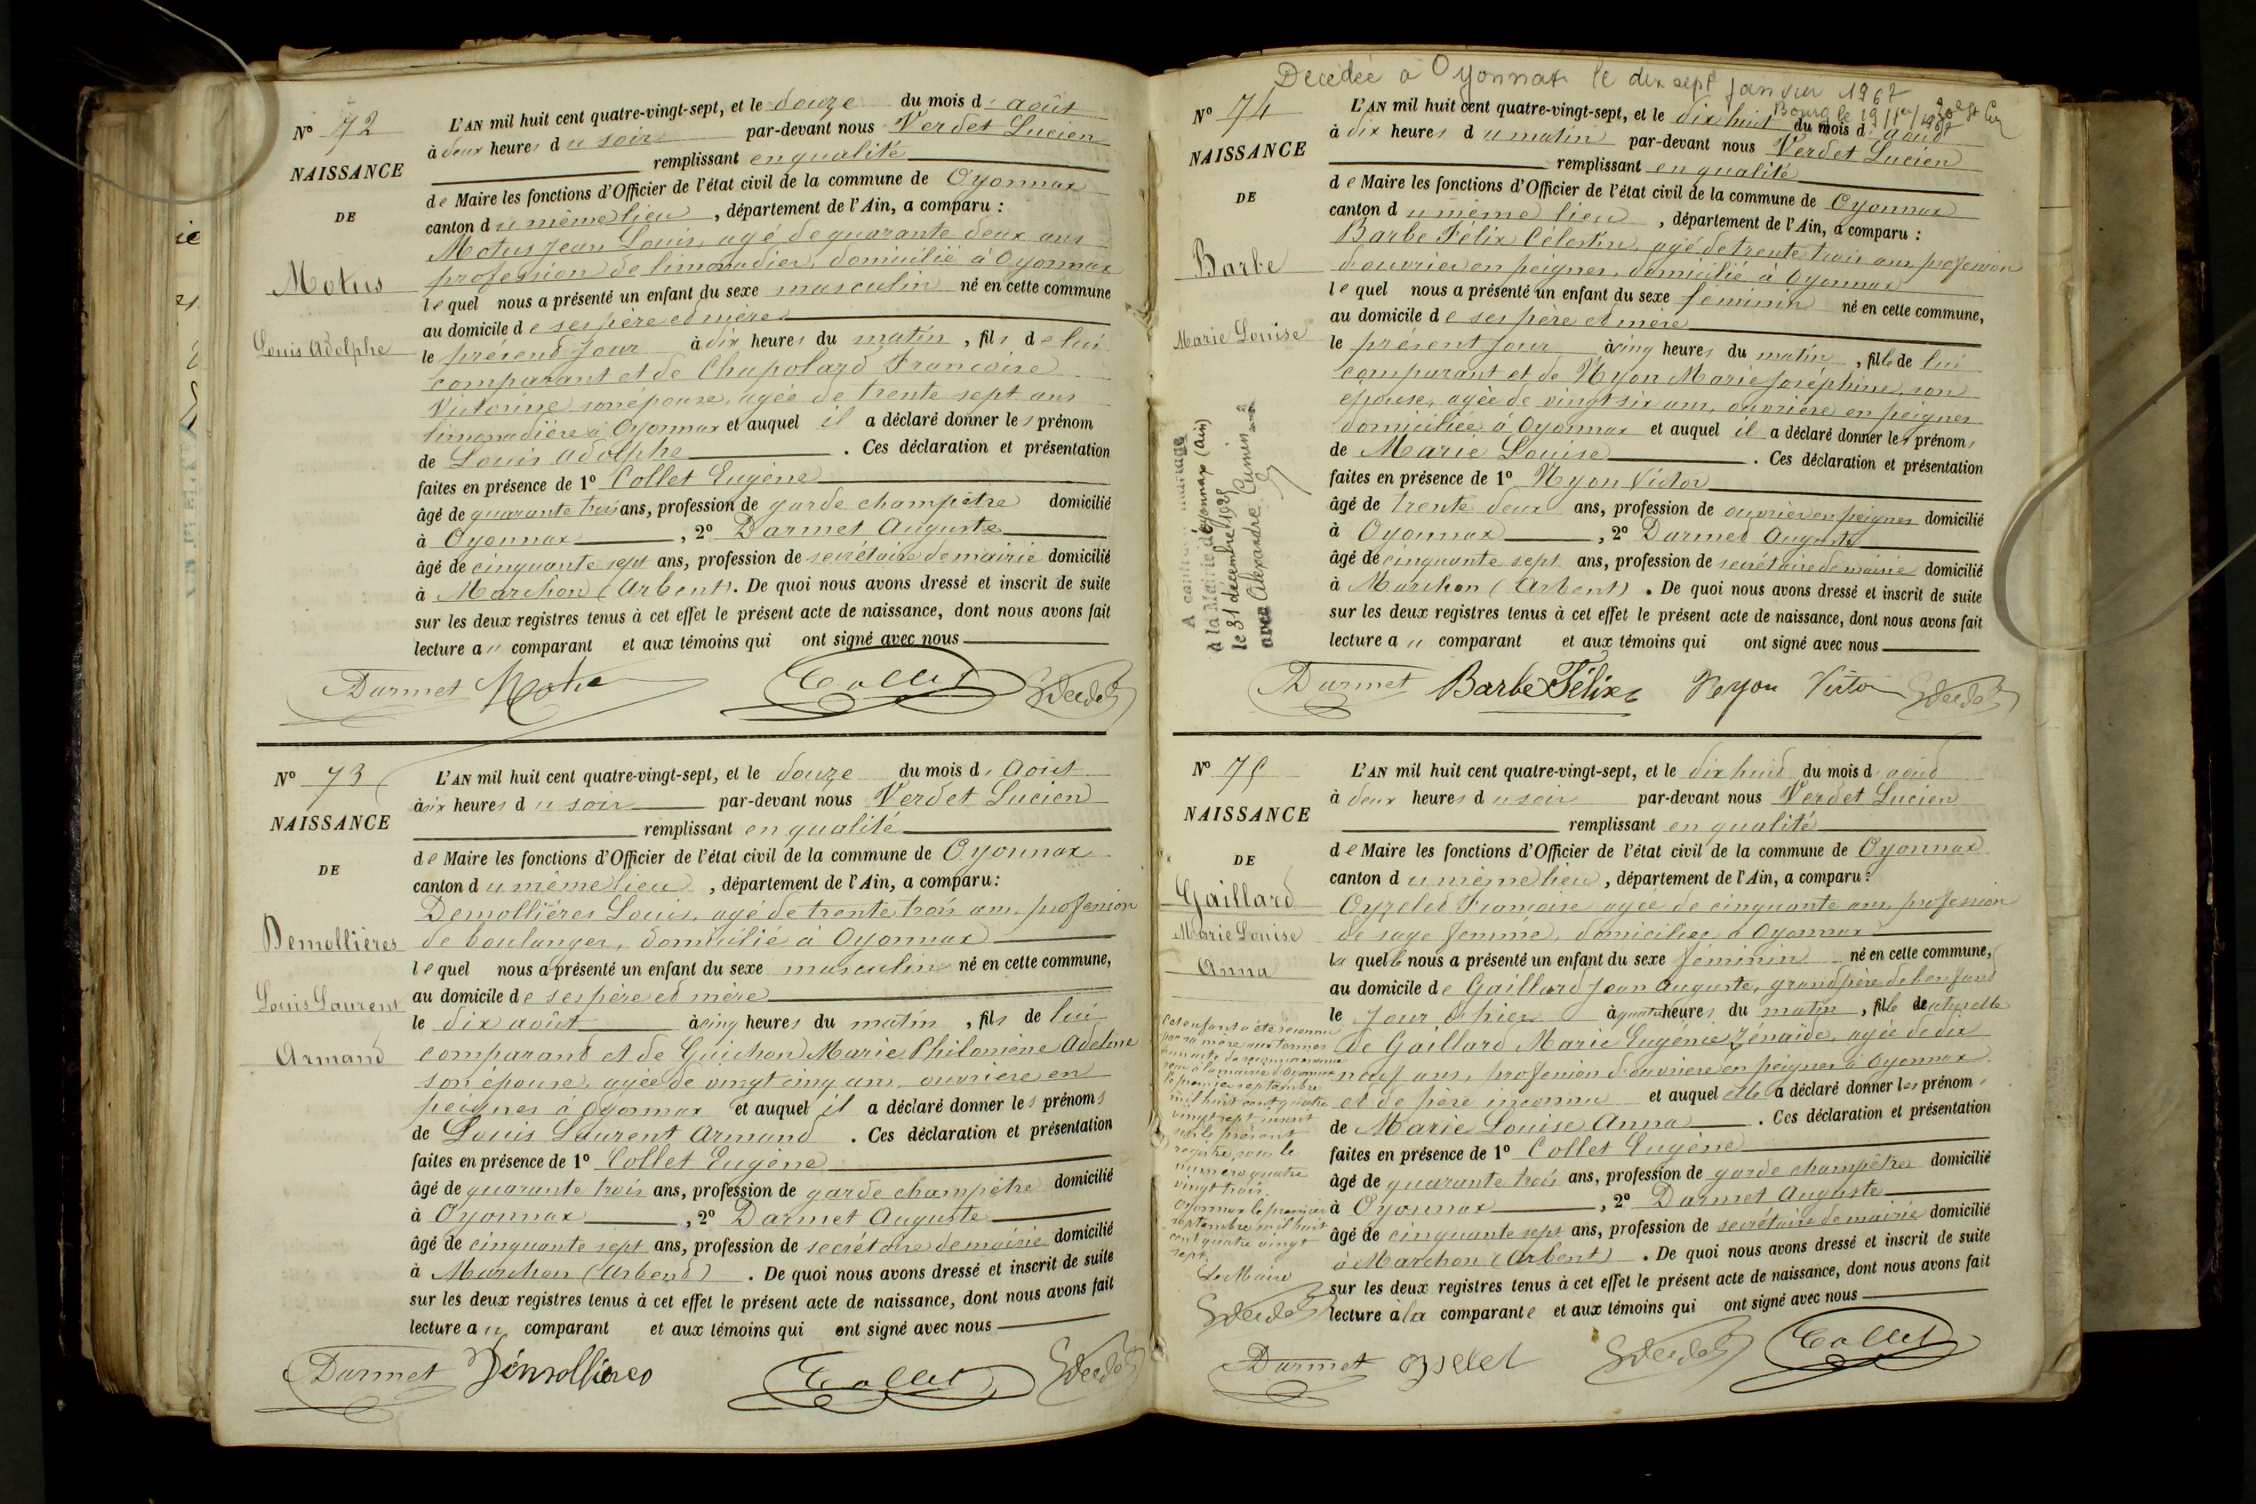 N° 72
NAISSANCE
DE
Motus
Louis Adolphe
L'AN mil huit cent quatre-vingt-sept, et le douze du mois d'août
à deux heures du soir par-devant nous Verdet Lucien
remplissant en qualité
de Maire les fonctions d'Officier de l'état civil de la commune de Oyonnax
canton du même lieu, département de l'Ain, a comparu :
Motus Jean Louis, agé de quarante deux ans
profession de limonadier, domicilié à Oyonnax
lequel nous a présenté un enfant du sexe masculin né en cette commune
au domicile de ses père et mère
le présent jour à dix heures du matin, fils de lui
comparant et de Chapolard Francoise
Victorine son épouse, agée de trente sept ans
limonadière à Oyonnax et auquel il a déclaré donner les prénom
de Louis Adolphe. Ces déclaration et présentation
faites en présence de 1° Collet Eugène
âgé de quarante trois ans, profession de garde champêtre domicilié
à Oyonnax, 2° Darmet Auguste
âgé de cinquante sept ans, profession de secrétaire de mairie domicilié
à Marchon (Arbent). De quoi nous avons dressé et inscrit de suite
sur les deux registres tenus à cet effet le présent acte de naissance, dont nous avons fait
lecture au comparant et aux témoins qui ont signé avec nous
Darmet Motus Collet Verdet
N° 73
NAISSANCE
DE
Demollières
Louis Laurent
Armand
L'AN mil huit cent quatre-vingt-sept, et le douze du mois d'Août
à six heures du soir par-devant nous Verdet Lucien
remplissant en qualité
de Maire les fonctions d'Officier de l'état civil de la commune de Oyonnax
canton du même lieu, département de l'Ain, a comparu :
Demollières Louis, agé de trente trois ans, profession
de boulanger, domicilié à Oyonnax
lequel nous a présenté un enfant du sexe masculin né en cette commune,
au domicile de ses père et mère
le dix août à cinq heures du matin, fils de lui
comparant et de Guichon Marie Philomène Adeline
son épouse, agée de vingt cinq ans, ouvrière en
peignes à Oyonnax et auquel il a déclaré donner les prénoms
de Louis Laurent Armand. Ces déclaration et présentation
faites en présence de 1° Collet Eugène
âgé de quarante trois ans, profession de garde champêtre domicilié
à Oyonnax, 2° Darmet Auguste
âgé de cinquante sept ans, profession de secrétaire de mairie domicilié
à Marchon (Arbent). De quoi nous avons dressé et inscrit de suite
sur les deux registres tenus à cet effet le présent acte de naissance, dont nous avons fait
lecture au comparant et aux témoins qui ont signé avec nous
Darmet Démollières Collet Verdet
Décédée à Oyonnax le dix sept janvier 1967
Bourg le 19
N° 74
NAISSANCE
DE
Barbe
Marie Louise
A contracté mariage
à la Mairie d'Oyonnax (Ain)
le 31 décembre 1925
avec Alexandre Cumin
L'AN mil huit cent quatre-vingt-sept, et le dix huit du mois d'aout
à dix heures du matin par-devant nous Verdet Lucien
remplissant en qualité
de Maire les fonctions d'Officier de l'état civil de la commune de Oyonnax
canton du même lieu, département de l'Ain, a comparu :
Barbe Félix Célestin, agé de trente trois ans, profession
d'ouvrier en peignes, domicilié à Oyonnax
lequel nous a présenté un enfant du sexe féminin né en cette commune,
au domicile de ses père et mère
le présent jour à cinq heures du matin, fille de lui
comparant et de Nyon Marie Joséphine, son
épouse, agée de vingt six ans, ouvrière en peignes
domiciliée à Oyonnax et auquel il a déclaré donner les prénoms
de Marie Louise. Ces déclaration et présentation
faites en présence de 1° Nyon Victor
âgé de trente deux ans, profession de ouvrier en peignes domicilié
à Oyonnax, 2° Darmet Auguste
âgé de cinquante sept ans, profession de secrétaire de mairie domicilié
à Marchon (Arbent). De quoi nous avons dressé et inscrit de suite
sur les deux registres tenus à cet effet le présent acte de naissance, dont nous avons fait
lecture au comparant et aux témoins qui ont signé avec nous
Darmet Barbe Félix Neyon Victor Verdet
N° 75
NAISSANCE
DE
Gaillard
Marie Louise
Anna
Cet enfant a été reconnu
par sa mère aux termes
d'un acte de reconnaissance
reçu à la mairie d'Oyonnax
le premier septembre
mil huit cent quatre
vingt sept, inscrit
sur le présent
registre, sous le
numéro quatre
vingt trois.
Oyonnax le premier
septembre mil huit
cent quatre vingt
sept.
Le Maire
Verdet
L'AN mil huit cent quatre-vingt-sept, et le dix huit du mois d'aout
à deux heures du soir par-devant nous Verdet Lucien
remplissant en qualité
de Maire les fonctions d'Officier de l'état civil de la commune de Oyonnax
canton du même lieu, département de l'Ain, a comparu :
Oyzelet Francoise agée de cinquante ans, profession
de sage femme, domiciliée à Oyonnax
laquelle nous a présenté un enfant du sexe féminin né en cette commune,
au domicile de Gaillard Jean Auguste, grand père de l'enfant
le jour d'hier à quatre heures du matin, fille naturelle
de Gaillard Marie Eugénie Zénaïde, agée de dix
neuf ans, profession d'ouvrière en peignes à Oyonnax
et de père inconnu et auquel elle a déclaré donner les prénom
de Marie Louise Anna. Ces déclaration et présentation
faites en présence de 1° Collet Eugène
âgé de quarante trois ans, profession de garde champêtre domicilié
à Oyonnax, 2° Darmet Auguste
âgé de cinquante sept ans, profession de secrétaire de mairie domicilié
à Marchon (Arbent). De quoi nous avons dressé et inscrit de suite
sur les deux registres tenus à cet effet le présent acte de naissance, dont nous avons fait
lecture à la comparante et aux témoins qui ont signé avec nous
Darmet Ozelet Verdet Collet